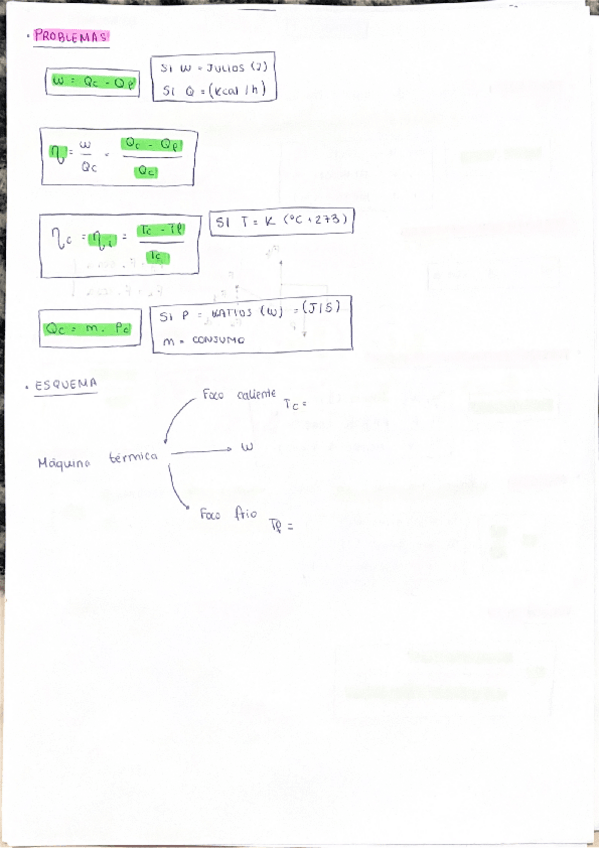 · PROBLEMAS
W = Qc - Qf
SI W = JULIOS (J)
SI Q = (Kcal/h)
η = W/Qc = Qc - Qf/Qc
ηc = ηi = Tc - Tf/Tc
SI T = K (ºC + 273)
Qc = m · Pc
SI P = WATIOS (W) = (J/S)
m = CONSUMO
· ESQUEMA
Foco caliente Tc =
Máquina térmica
W
Foco frio Tf =